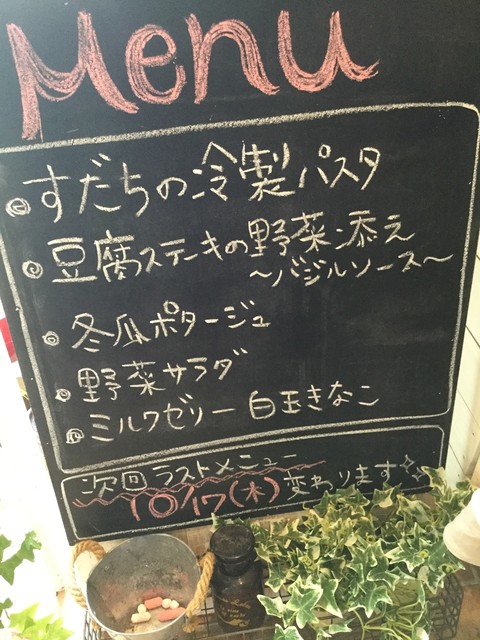 Menu
すだちの冷製パスタ
豆腐ステーキの野菜添え
〜バジルソース〜
冬瓜ポタージュ
野菜サラダ
ミルクゼリー 白玉きなこ
次回ラストメニュー
10/17(木)変わります